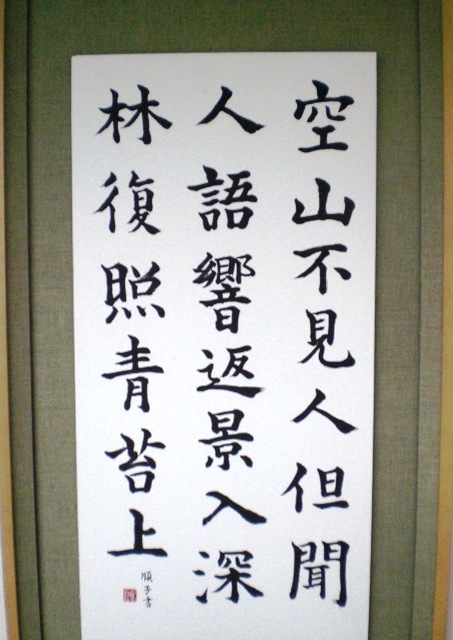 空山不見人但聞
人語響返景入深
林復照青苔上
順子書